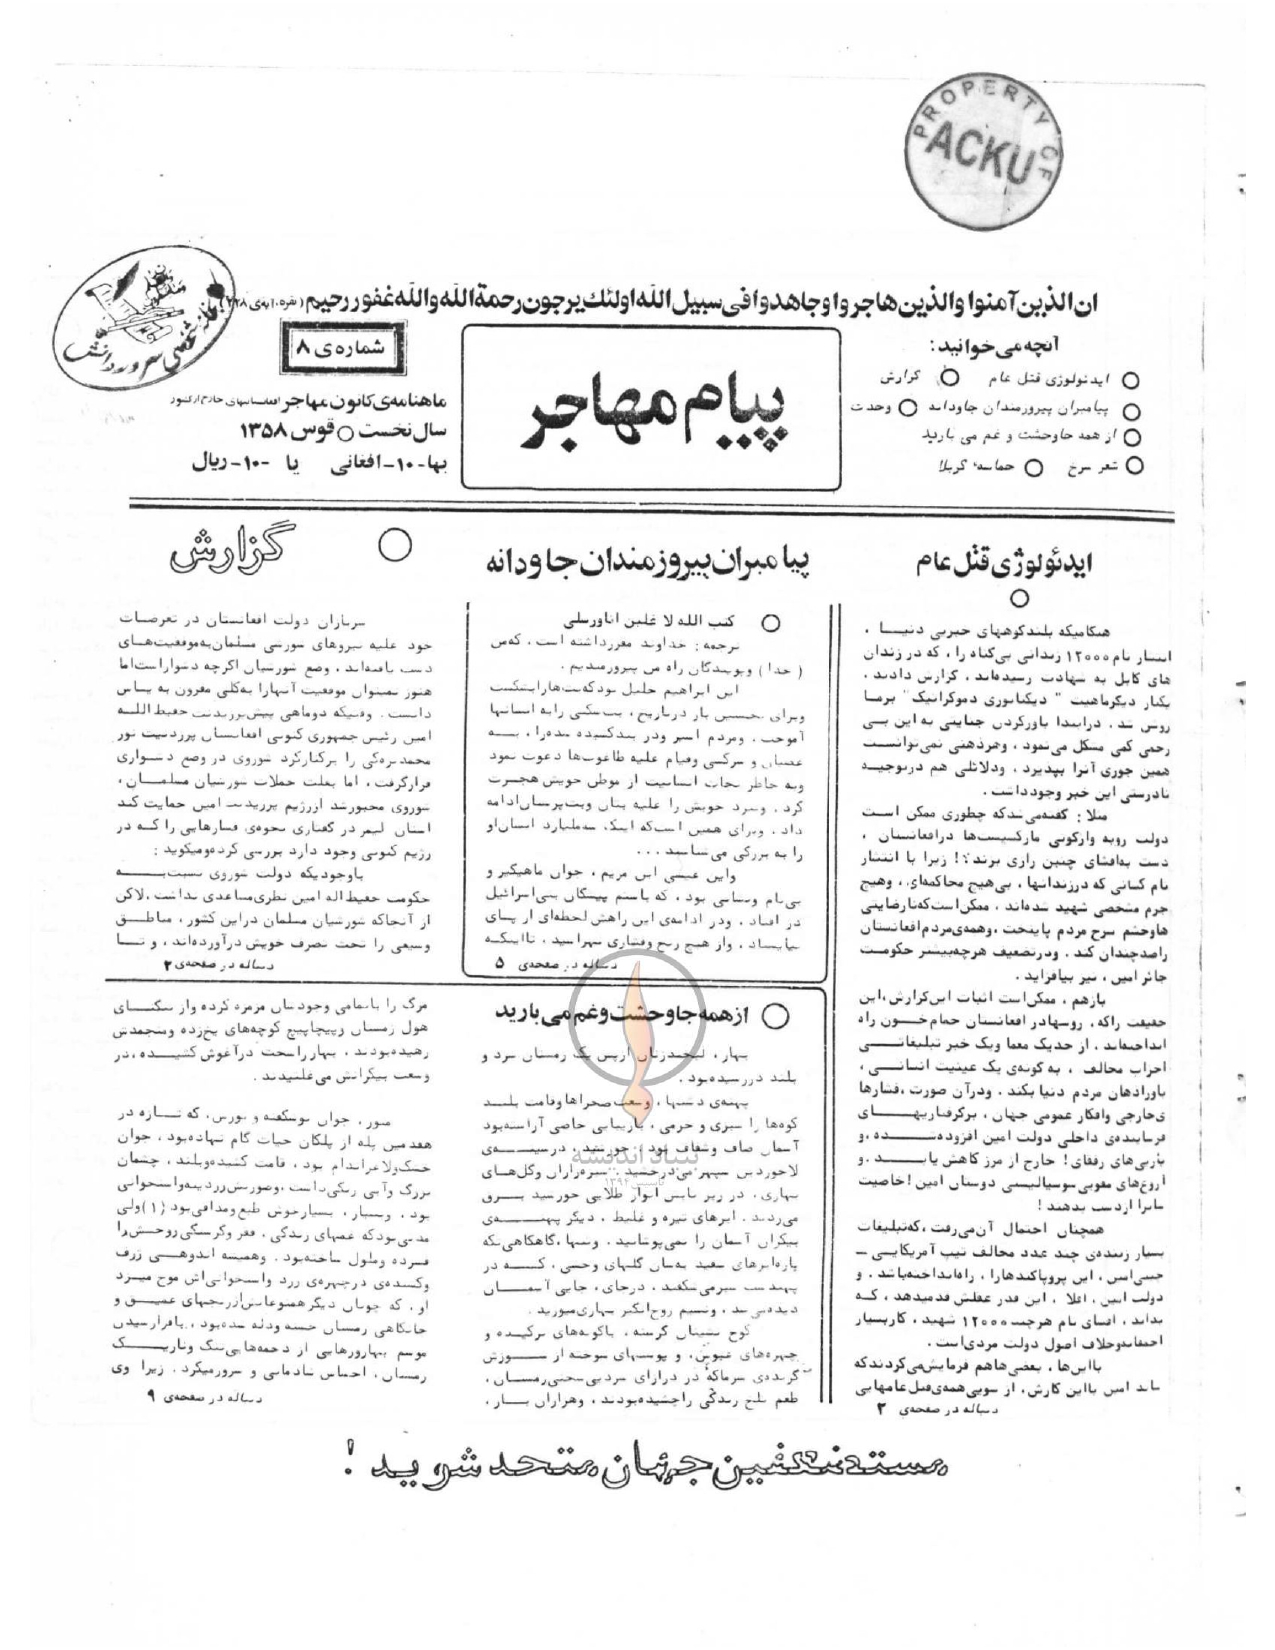 PROPERTY OF
ACKU
ان الذین آمنوا والذین هاجروا وجاهدوا فی سبیل الله اولئک یرجون رحمة الله والله غفور رحیم (بقره، آیه‌ی ۲۱۸)
آنچه می‌خوانید:
ایدئولوژی قتل عام
گزارش
پیامبران پیروزمندان جاودانه
وحدت
از همه جا وحشت و غم می بارید
شعر سرخ
حماسهٔ کربلا
پیام مهاجر
شماره‌ی ۸
ماهنامه‌ی کانون مهاجر افغانستانیهای خارج از کشور
سال نخست قوس ۱۳۵۸
بها -۱۰۰ افغانی یا -۱۰۰ ریال
ایدئولوژی قتل عام
هنگامیکه بلندگوههای خبری دنیا ،
انتشار نام ۱۲۰۰۰ زندانی بی‌گناه را ، که در زندان
های کابل به شهادت رسیده‌اند ، گزارش دادند ،
یکبار دیگر ماهیت " دیکتاتوری دموکراتیک " برملا
روشن شد . در ابتدا باور کردن جنایتی به این بی
رحمی کمی مشکل می‌نمود ، و هر ذهنی نمی‌توانست
همین جوری آنرا بپذیرد ، و دلائلی هم در توجیه
نادرستی این خبر وجود داشت .
مثلا : گفته می‌شد که چطوری ممکن است
دولت رو به واژگونی مارکسیست‌ها در افغانستان ،
دست به افشای چنین رازی بزند ؟! زیرا با انتشار
نام کسانی که در زندانها ، بی‌هیچ محاکمه‌ای ، و هیچ
جرم مشخصی شهید شده‌اند ، ممکن است که نارضایتی
ها و خشم سرخ مردم پایتخت ، و همه‌ی مردم افغانستان
را صد چندان کند . و در تضعیف هرچه بیشتر حکومت
جائر امین ، نیز بیافزاید .
بازهم ، ممکن است اثبات این گزارش ، این
حقیقت را که ، روسها در افغانستان حمام خون راه
انداخته‌اند ، از حد یک معما و یک خبر تبلیغاتی
احزاب مخالف ، به گونه‌ی یک عینیت انسانی ،
باورادهان مردم دنیا بکند . و در آن صورت ، فشارها
ی خارجی و افکار عمومی جهان ، بر گرفتاریهای
فرساینده‌ی داخلی دولت امین افزوده شده ، و
یاری‌های رفقای ! خارج از مرز کاهش یابد . و
دوستان امین ! خاصیت
را از دست بدهند !
همچنان احتمال آن می‌رفت ، که تبلیغات
بسیار زننده‌ی چند عدد مخالف تیپ آمریکایی –
این پروپاگندها را ، راه انداخته باشد . و
دولت امین ، این قدر عقلش قد میدهد ، که
بداند ، افشای نام ۱۲۰۰۰ شهید ، کار بسیار
احمقانه و خلاف اصول دولت مردی است .
با این‌ها ، بعضی‌ها هم فرمایش می‌کردند که
شاید امین با این کارش ، از سویی همه‌ی قتل عامهایی
دنباله در صفحه‌ی ۲
پیامبران پیروزمندان جاودانه
کتب الله لاغلبن انا ورسلی
ترجمه : خداوند مقرر داشته است ، که من
( خدا ) و پویندگان راه من پیروزمندیم .
این ابراهیم خلیل بود که بت‌ها را بشکست
و برای نخستین بار در تاریخ ، بت شکنی را به انسانها
آموخت . و مردم اسیر و در بند کشیده شده را ، به
عصیان و سرکشی و قیام علیه طاغوت‌ها دعوت نمود
و به خاطر نجات انسانیت از موطن خویش هجرت
کرد . و نبرد خویش را علیه بتان و بت پرستان ادامه
داد . و برای همین است که اینک سه ملیارد انسان او
را به بزرگی می‌شناسد ...
و این عیسی ابن مریم ، جوان ماهیگیر و
بی‌نام و نشانی بود ، که بنی اسرائیل
در افتاد . و در ادامه‌ی این راهش لحظه‌ای از پای
نایستاد ، و از هیچ رنج و فشاری نهراسید ، تا اینکه
دنباله در صفحه‌ی ۵
گزارش
سربازان دولت افغانستان در تعرضات
خود علیه نیروهای شورشی مسلمان به موفقیت‌های
دست یافته‌اند ، وضع شورشیان اگرچه دشوار است اما
هنوز نمیتوان موقعیت آنها را به کلی مقرون به یاس
دانست . وقتیکه دو ماهی پیش پرزیدنت حفیظ الله
امین رئیس جمهوری کنونی افغانستان پرزدیت نور
محمد تره‌کی را برکنار کرد شوروی در وضع دشواری
قرار گرفت ، اما بعلت حملات شورشیان مسلمان ،
شوروی مجبور شد از رژیم پرزیدنت امین حمایت کند
در گفتاری نحوه‌ی فشارهایی را که در
رژیم کنونی وجود دارد بررسی کرده و میگوید :
با وجودیکه دولت شوروی نسبت به
حکومت حفیظ اله امین نظری مساعدی نداشت ، لاکن
از آنجا که شورشیان مسلمان در این کشور ، مناطق
وسیعی را تحت تصرف خویش در آورده‌اند ، و تا
دنباله در صفحه‌ی ۲
از همه جا وحشت و غم می بارید
بهار ، لبخند زنان از پس یک زمستان سرد و
بلند در رسیده بود .
پهنه‌ی دشتها ، وسعت صحراها و قامت بلند
کوه‌ها را سبزی و خرمی ، با زیبایی خاصی آراسته بود
آسمان صاف و شفاف بود ، خورشید ، در سینه‌ی
لاجوردین سپهر می‌درخشید . سبزه‌زاران و گل‌های
بهاری ، در زیر تابش انوار طلایی خورشید برق
می‌زدند . ابرهای تیره و غلیظ ، دیگر پهنه‌ی
بیکران آسمان را نمی‌پوشانید . و تنها ، گاهگاهی تکه
پاره‌ابرهای سفید به سان گلهای وحشی ، که در
پهندشت سبز می‌شکفد ، در جای ، جایی آسمان
دیده می‌شد ، و نسیم روح‌انگیز بهاری میوزید .
کوخ نشینان گرسنه ، با گونه‌های ترکیده و
چهره‌های عبوس ، و پوستهای سوخته از سوزش
گزنده‌ی سرما که در درازای سردی سختی زمستان ،
طعم تلخ زندگی را چشیده بودند ، و هزاران بار ،
مرگ را با تمامی وجودشان مزمزه کرده و از تنگنای
هول زمستان و پیچاپیچ کوچه‌های یخ‌زده و منجمدش
رهیده بودند ، بهار را سخت در آغوش کشیده ، در
وسعت بیکرانش می‌غلتیدند .
منور ، جوان نوشگفته و نورس ، که تازه در
هفدمین پله از پلکان حیات گام نهاده بود ، جوان
خشک و لاغر اندام بود ، قامت کشیده و بلند ، چشمان
بزرگ و آبی رنگی داشت ، و صورتش زرد ینه و استخوانی
بود ، و بسیار ، بسیار خوش طبع و مذاقی بود (۱) ولی
مدتی بود که غمهای زندگی ، فقر و گرسنگی روحش را
فسرده و ملول ساخته بود . و همیشه اندوهی ژرف
و کشنده‌ی در چهره‌ی زرد و استخوانی‌اش موج میزد
او ، که چونان دیگر همنوعانش از رنجهای عمیق و
جانکاهی زمستان خسته و دلته شده بود ، با فرا رسیدن
موسم بهار و رهایی از دخمه‌هایی تنگ و تاریک
زمستان ، احساس شادمانی و سرور میکرد . زیرا وی
دنباله در صفحه‌ی ۹
بنیاد اندیشه
تاسیس ۱۳۹۴
مستضعفین جهان متحد شوید !